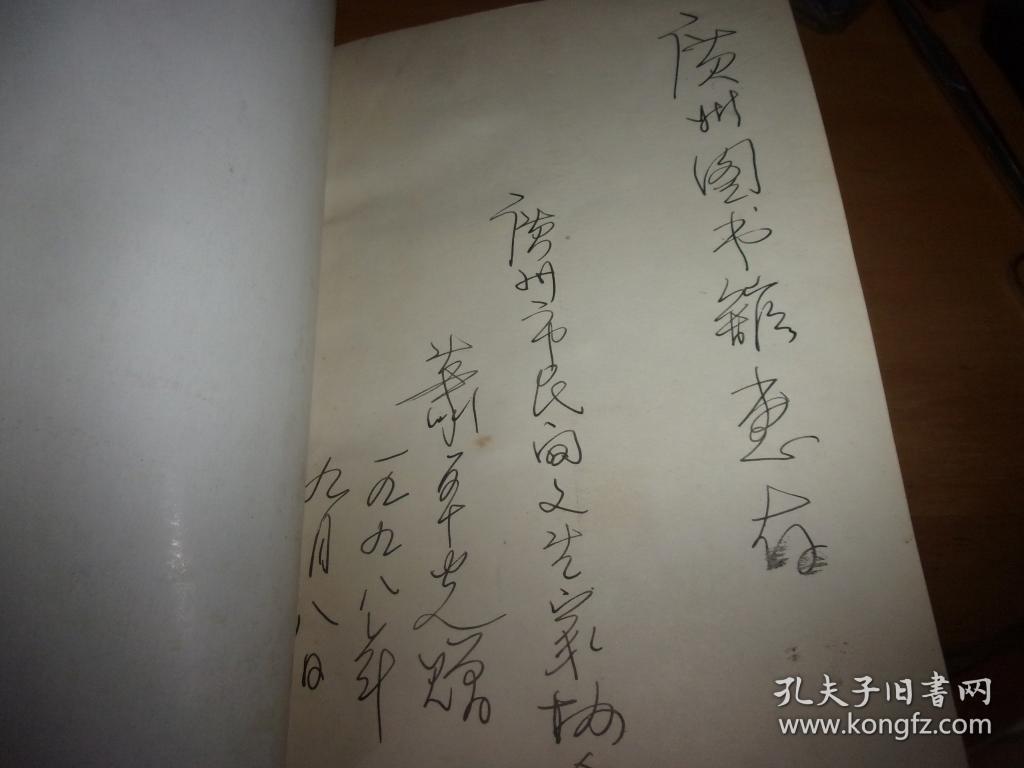 廣州图书館惠存
廣州市民间文艺家
赠
一九九八年
九月八日
孔夫子旧書网
www.kongfz.com